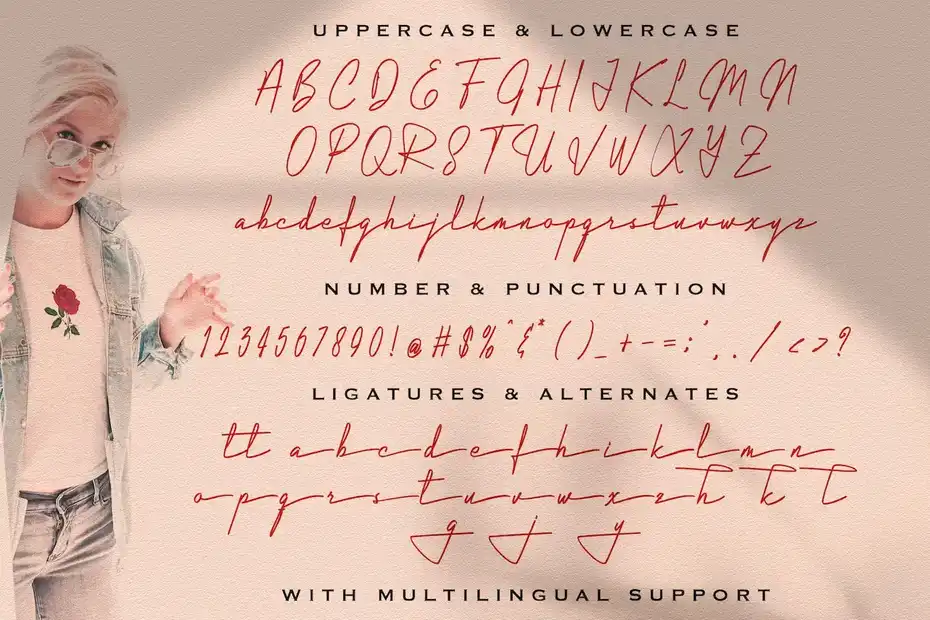 UPPERCASE & LOWERCASE
ABCDEFGHIJKLMN
OPQRSTUVWXYZ
abcdefghijlkmnopqrstuvwxyz
NUMBER & PUNCTUATION
1234567890!@#$%^&*()_+-=:;,./<>?
LIGATURES & ALTERNATES
tt abcdefhiklmn
opqrstuvwxzhkl
gjy
WITH MULTILINGUAL SUPPORT